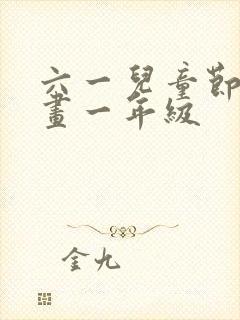 六一兒童節
畫一年級
金九